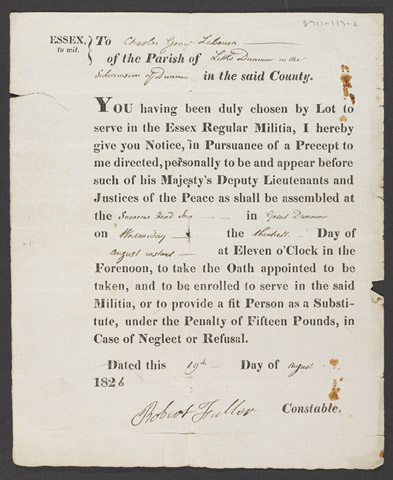 8911-113-2
ESSEX, to wit. } To Charles Gray Labourer
of the Parish of Little Dunmow in the
Subdivision of Dunmow in the said County.
YOU having been duly chosen by Lot to
serve in the Essex Regular Militia, I hereby
give you Notice, in Pursuance of a Precept to
me directed, personally to be and appear before
such of his Majesty's Deputy Lieutenants and
Justices of the Peace as shall be assembled at
the Saracens Head Inn in Great Dunmow
on Wednesday the Day of
August instant at Eleven o'Clock in the
Forenoon, to take the Oath appointed to be
taken, and to be enrolled to serve in the said
Militia, or to provide a fit Person as a Substi-
tute, under the Penalty of Fifteen Pounds, in
Case of Neglect or Refusal.
Dated this 19th Day of August
1826
Robert Fuller Constable.